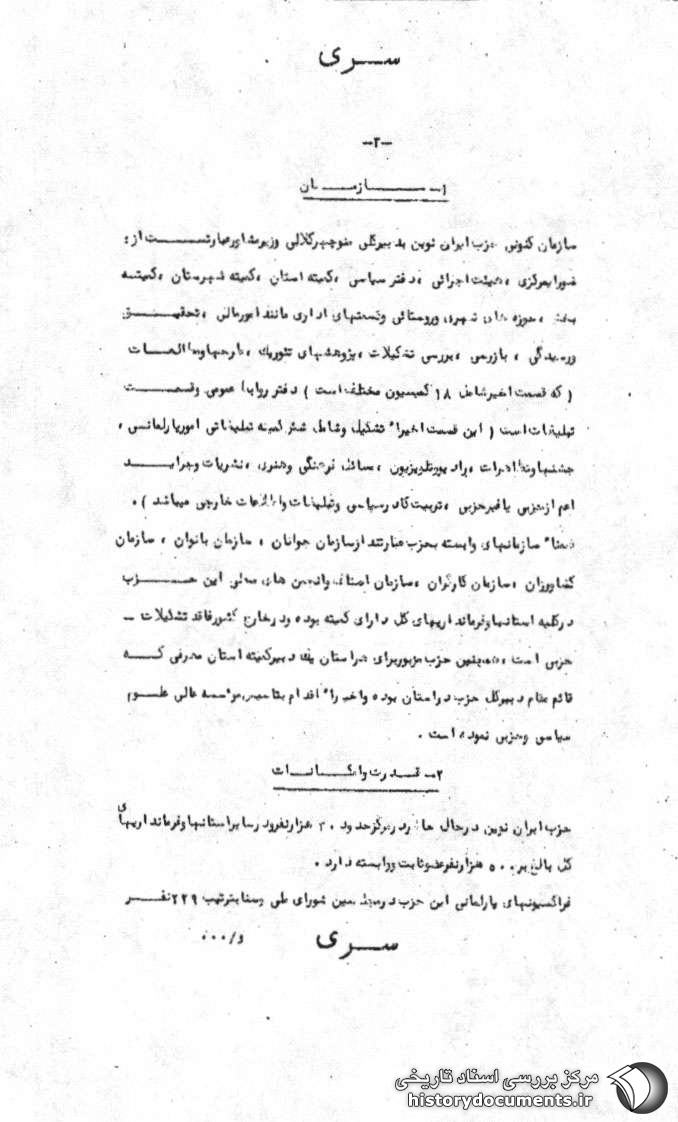 سری
-۲-
۱- سازمان
سازمان کنونی حزب ایران نوین بدبیرکلی منوچهرکلالی وزیرمشاورعبارتست از:
شورایمرکزی ، هیئت اجرائی ، دفتر سیاسی ، کمیته استان ، کمیته شهرستان ، کمیته
بخش ، حوزه های شهری وروستائی وقسمتهای اداری مانند امورمالی ، تحقیق
ورسیدگی ، بازرسی ، بررسی تشکیلات ، پژوهشهای تئوریک ، طرحهاومطالعات
( که قسمت اخیرشامل ۱۸ کمیسیون مختلف است ) دفتر روابط عمومی وقسمت
تبلیغات است ( این قسمت اخیراً تشکیل وشامل شش کمیته تبلیغاتی امورپارلمانی ،
جشنهاوتظاهرات ، رادیووتلویزیون ، مسائل فرهنگی وهنری ، نشریات وجراید
اعم ازحزبی یاغیرحزبی ، تربیت کادرسیاسی وتبلیغات واطلاعات خارجی میباشد ) .
ضمناً سازمانهای وابسته بحزب عبارتند ازسازمان جوانان ، سازمان بانوان ، سازمان
کشاورزان ، سازمان کارگران ، سازمان اصناف وانجمن های محلی این حزب
درکلیه استانهاوفرمانداریهای کل دارای کمیته بوده ودرخارج کشورفاقد تشکیلات -
حزبی است ، همچنین حزب مزبوربرای هراستان یک دبیرکمیته استان معرفی که
قائم مقام دبیرکل حزب دراستان بوده واخیراً اقدام بتاسیس موسسه عالی علوم
سیاسی وحزبی نموده است .
۲- قدرت وامکانات
حزب ایران نوین درحال حاضردرمرکزحدود هزارنفرودرسایراستانهاوفرمانداریهای
کل بالغ بر۵۰۰ هزارنفرعضوثابت ووابسته دارد .
فراکسیونهای پارلمانی این حزب درمجلسین شورای ملی وسنابترتیب ۲۲۹نفر
سری
و/۰۰۰
مرکز بررسی اسناد تاریخی
historydocuments.ir